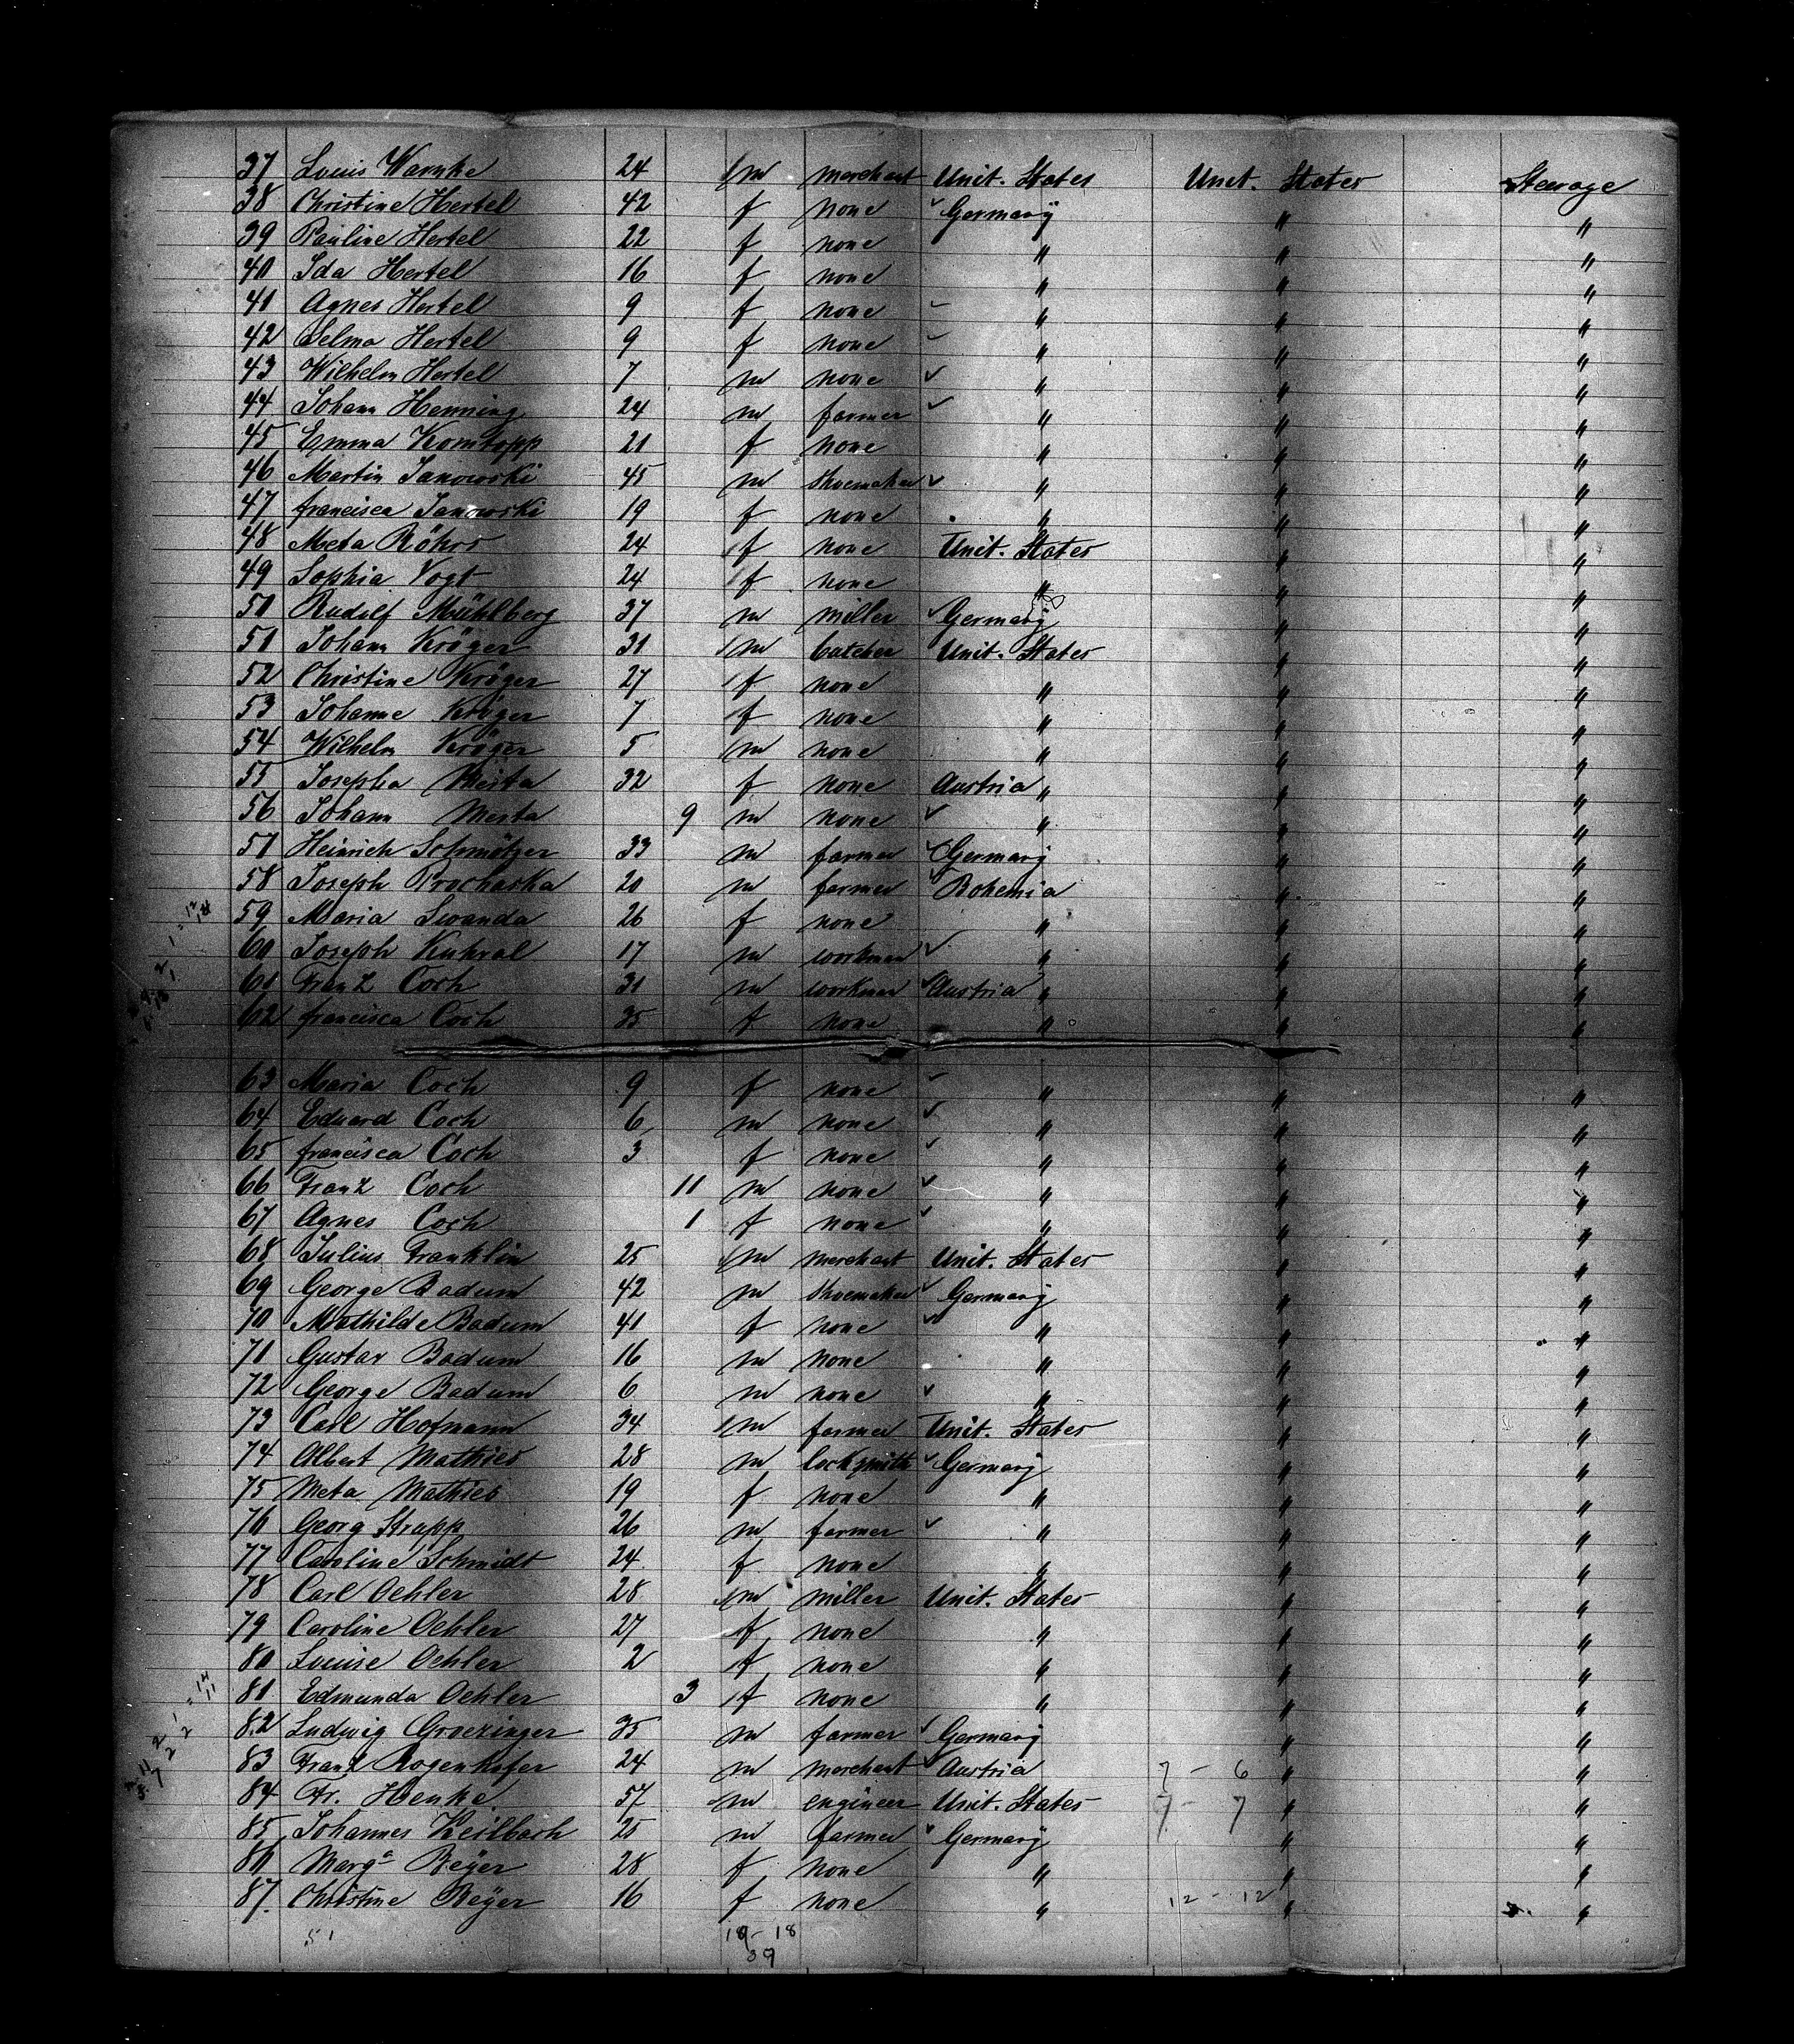 37 Louis Warnke 24 m merchant Unit. States Unit. States Steerage
38 Christine Hertel 42 f none ✓ Germany " "
39 Pauline Hertel 22 f none " " "
40 Ida Hertel 16 f none " " "
41 Agnes Hertel 9 f none " " "
42 Selma Hertel 9 f none " " "
43 Wilhelm Hertel 7 m none ✓ " " "
44 Johann Henning 24 m farmer ✓ " " "
45 Emma 21 f none " " "
46 Martin Janowski 45 m shoemaker ✓ " " "
47 francisca Janowski 19 f none " " "
48 Meta Röhrs 24 f none Unit. States " "
49 Sophia Vogt 24 f none " " "
50 Rudolf Mühlberg 37 m miller ✓ Germany " "
51 Johann Kröger 31 m butcher Unit. States " "
52 Christine Kröger 27 f none " " "
53 Johanne Kröger 7 f none " " "
54 Wilhelm Kröger 5 m none " " "
55 Josepha Mesta 32 f none Austria " " "
56 Johann Mesta 9 m none ✓ " " "
57 Heinrich 33 m farmer ✓ Germany " "
58 Joseph Prochaska 20 m farmer ✓ Bohemia " "
59 Maria Swanda 26 f none " " "
60 Joseph Kuhral 17 m workman ✓ " " "
61 Franz Coch 31 m workman ✓ Austria " " "
62 francisca Coch 35 f none " " "
63 Maria Coch 9 f none " " "
64 Eduard Coch 6 m none ✓ " " "
65 francisca Coch 3 f none ✓ " " "
66 Franz Coch 11 m none ✓ " " "
67 Agnes Coch 1 f none ✓ " " "
68 Julius Franklin 25 m merchant Unit. States " "
69 George Badum 42 m shoemaker ✓ Germany " "
70 Mathilde Badum 41 f none ✓ " " "
71 Gustav Badum 16 m none " " "
72 George Badum 6 m none ✓ " " "
73 Carl Hofmann 34 m farmer Unit. States " "
74 Albert Mathies 28 m locksmith ✓ Germany " "
75 Meta Mathies 19 f none " " "
76 Georg Strapp 26 m farmer ✓ " " "
77 Caroline Schmidt 24 f none " " "
78 Carl Oehler 28 m miller Unit. States " "
79 Caroline Oehler 27 f none " " "
80 Louise Oehler 2 f none " " "
81 Edmunda Oehler 3 f none " " "
82 Ludwig Groezinger 35 m farmer ✓ Germany " "
83 Franz Rogenhofer 24 m merchant ✓ Austria 7 - 6 " "
84 Fr. Henke 57 m engineer Unit. States 7 - 7 " "
85 Johannes Keilbach 25 m farmer ✓ Germany " "
86 Marga Beyer 28 f none " " "
87. Christine Beyer 16 f none " 12 - 12 " "
51 19 - 18
39